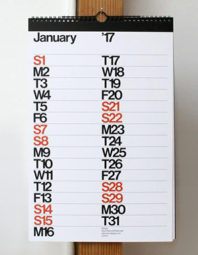 January '17
S1 T17
M2 W18
T3 T19
W4 F20
T5 S21
F6 S22
S7 M23
S8 T24
M9 W25
T10 T26
W11 F27
T12 S28
F13 S29
S14 M30
S15 T31
M16